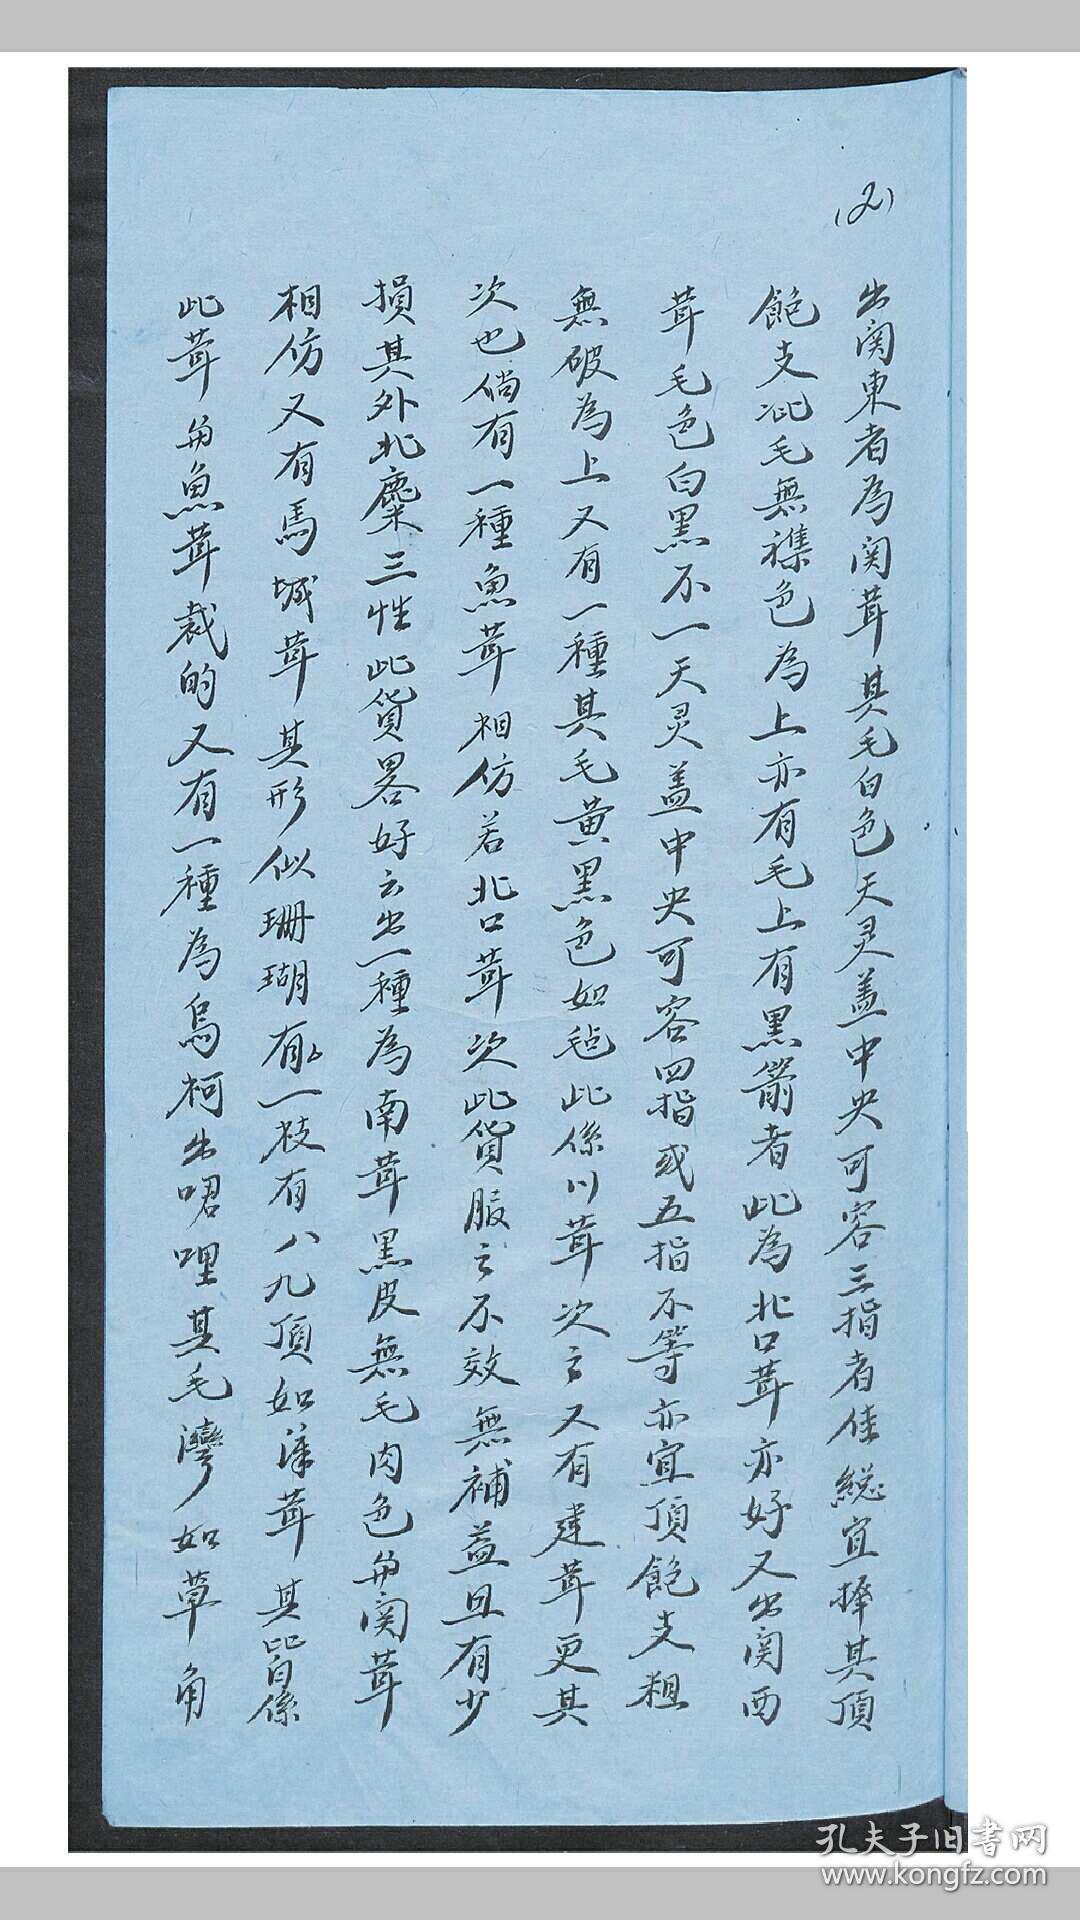 (2)
出関東者為関茸其毛白色天灵盖中央可容三指者佳総宜擇其頂
飽支泚毛無襍色為上亦有毛上有黒箭者此為北口茸亦好又出関西
茸毛色白黒不一天灵盖中央可容四指或五指不等亦宜頂飽支粗
無破為上又有一種其毛黄黒色如毡此係川茸次之又有建茸更其
次也倘有一種魚茸相仿若北口茸次此貨服之不效無補益且有少
損其外北麋三性此貨畧好云出一種為南茸黒皮無毛肉色与関茸
相仿又有馬城茸其形似珊瑚有一枝有八九頂如茸其皆係
此茸与魚茸裁的又有一種為烏柯出喏哩其毛灣如草角
孔夫子旧書网
www.kongfz.com